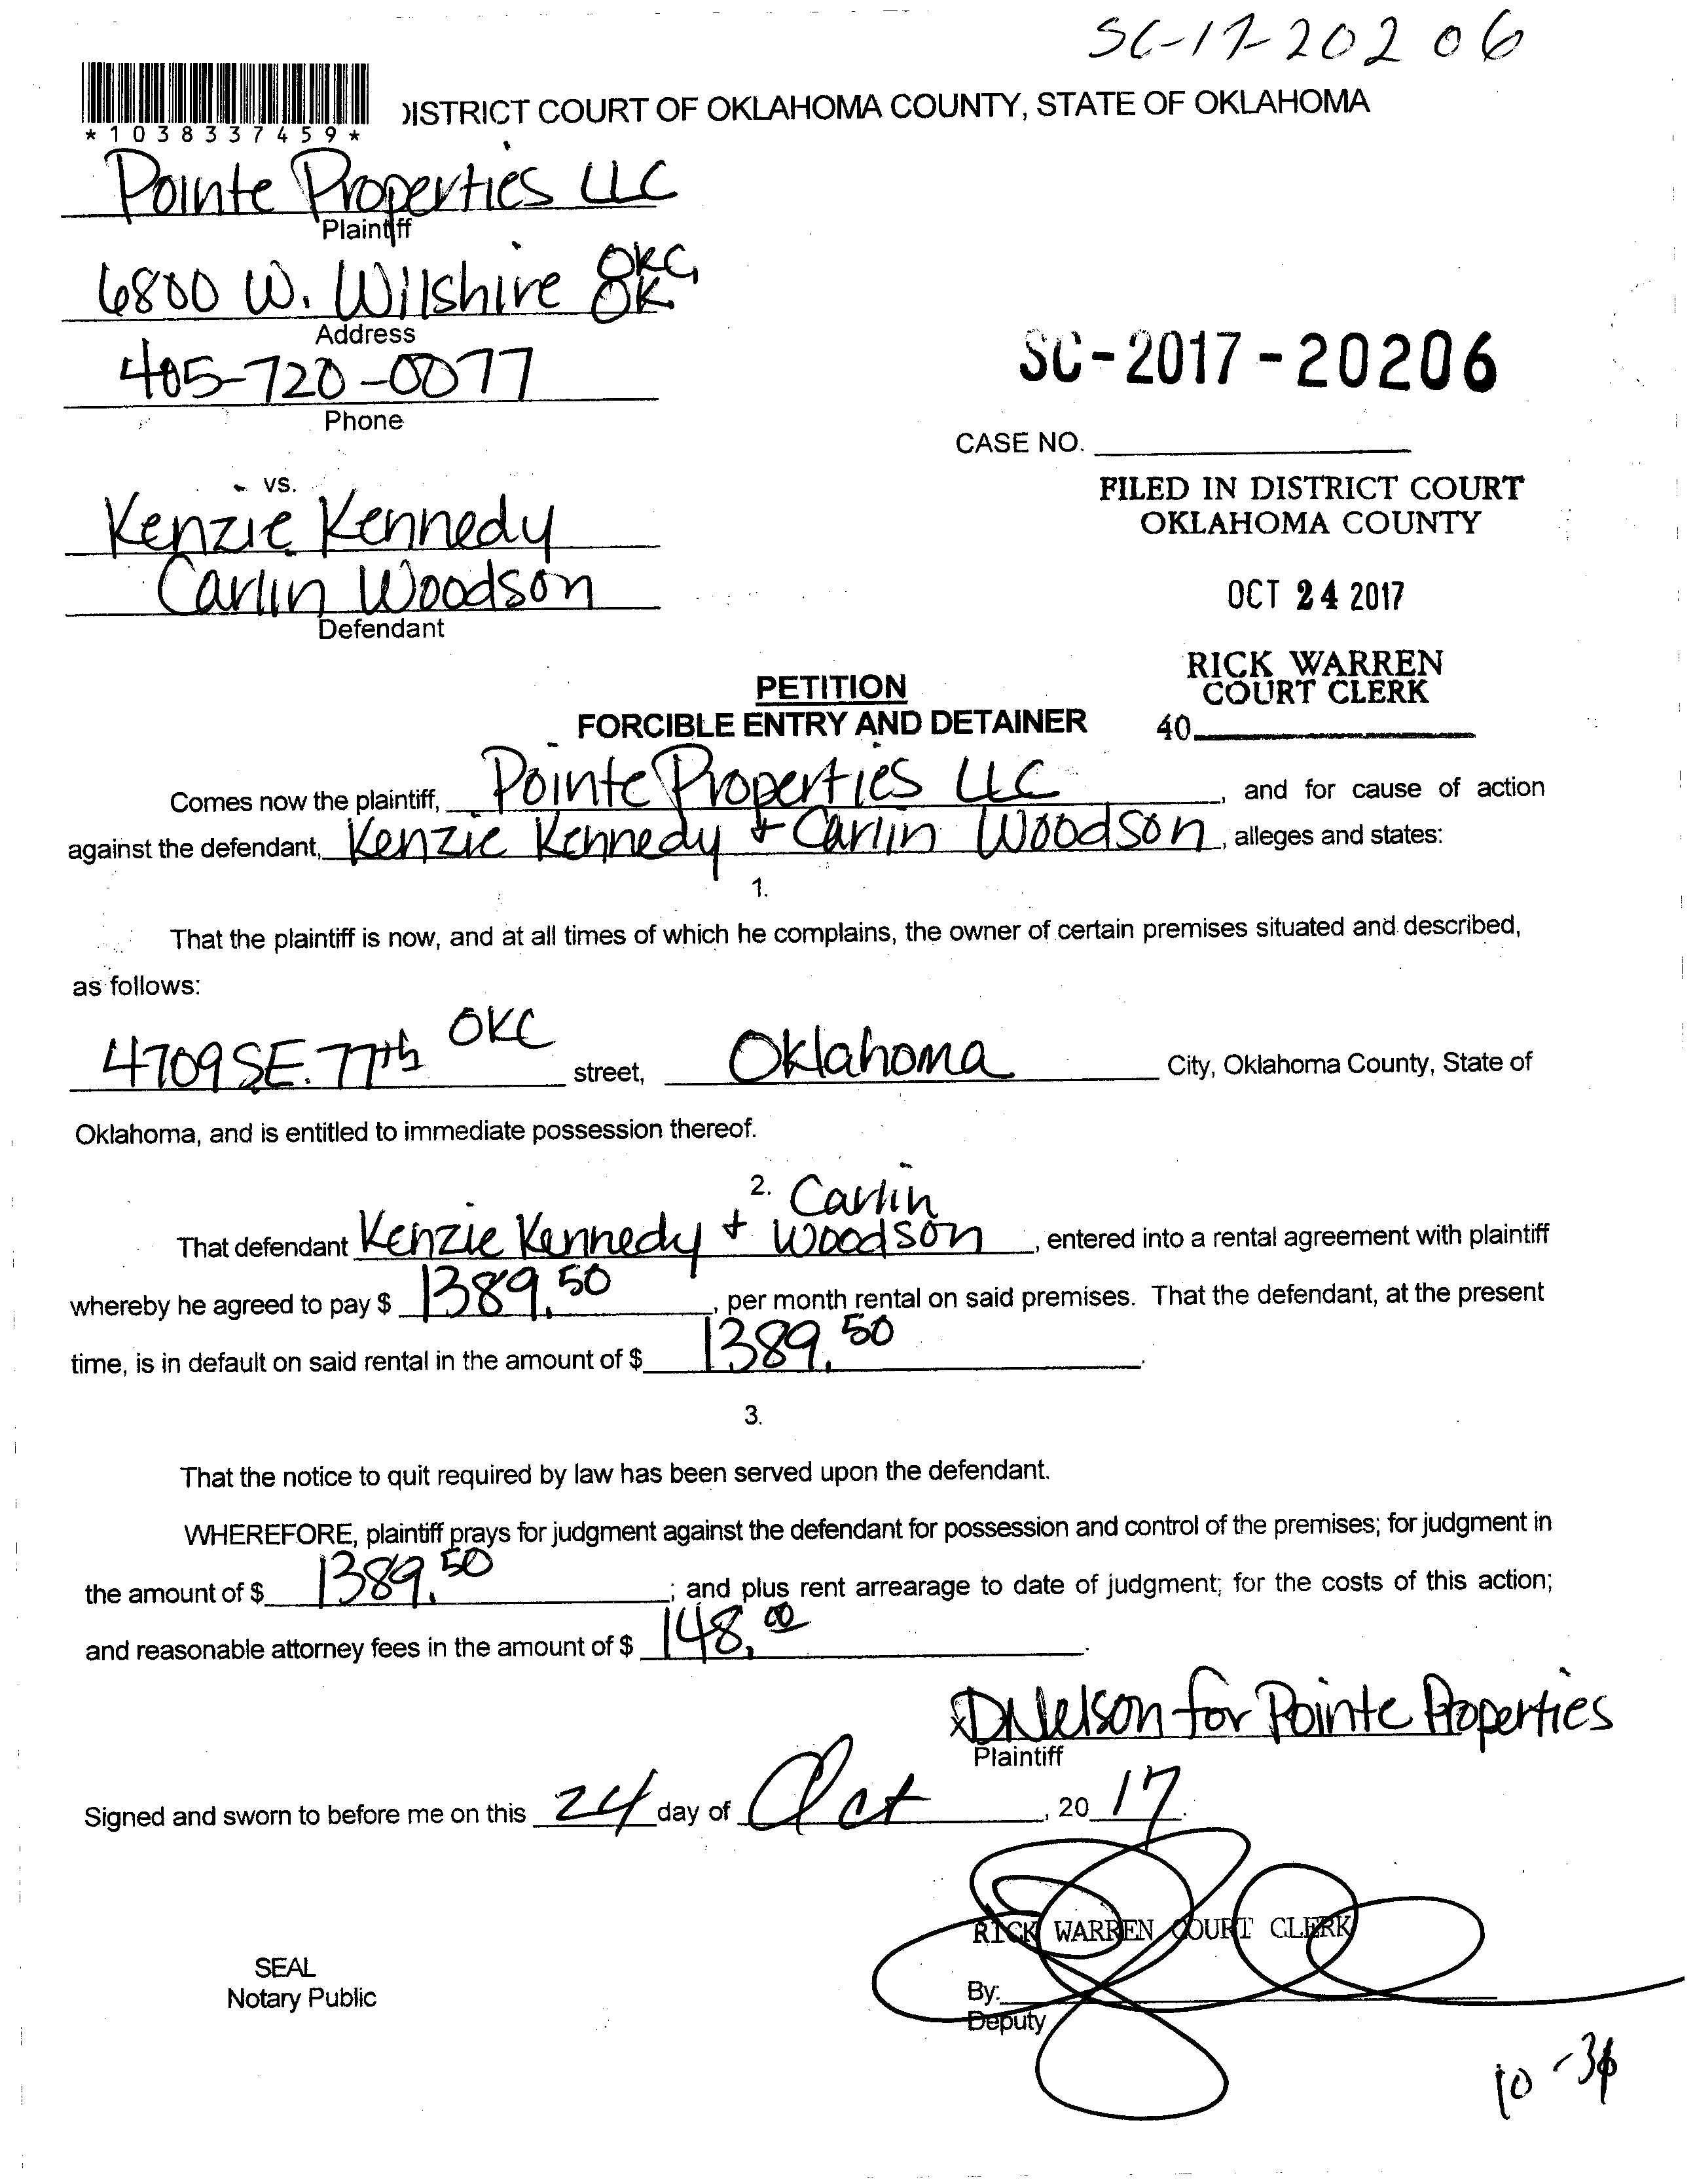 SC-17-20206
*1038337459*
DISTRICT COURT OF OKLAHOMA COUNTY, STATE OF OKLAHOMA
Pointe Properties LLC
Plaintiff
6800 W. Wilshire OKC, OK
Address
405-720-0077
Phone
SC-2017-20206
CASE NO.
vs.
Kenzie Kennedy
Carlin Woodson
Defendant
FILED IN DISTRICT COURT
OKLAHOMA COUNTY
OCT 24 2017
RICK WARREN
COURT CLERK
40
PETITION
FORCIBLE ENTRY AND DETAINER
Comes now the plaintiff, Pointe Properties LLC, and for cause of action
against the defendant, Kenzie Kennedy + Carlin Woodson, alleges and states:
1.
That the plaintiff is now, and at all times of which he complains, the owner of certain premises situated and described,
as follows:
4709 SE. 77th OKC street, Oklahoma City, Oklahoma County, State of
Oklahoma, and is entitled to immediate possession thereof.
2.
That defendant Kenzie Kennedy + Carlin Woodson, entered into a rental agreement with plaintiff
whereby he agreed to pay $ 1389.50, per month rental on said premises. That the defendant, at the present
time, is in default on said rental in the amount of $ 1389.50.
3.
That the notice to quit required by law has been served upon the defendant.
WHEREFORE, plaintiff prays for judgment against the defendant for possession and control of the premises; for judgment in
the amount of $ 1389.50; and plus rent arrearage to date of judgment; for the costs of this action;
and reasonable attorney fees in the amount of $ 148.00.
x DNelson for Pointe Properties
Plaintiff
Signed and sworn to before me on this 24 day of Oct, 20 17.
RICK WARREN COURT CLERK
SEAL
Notary Public
By:
Deputy